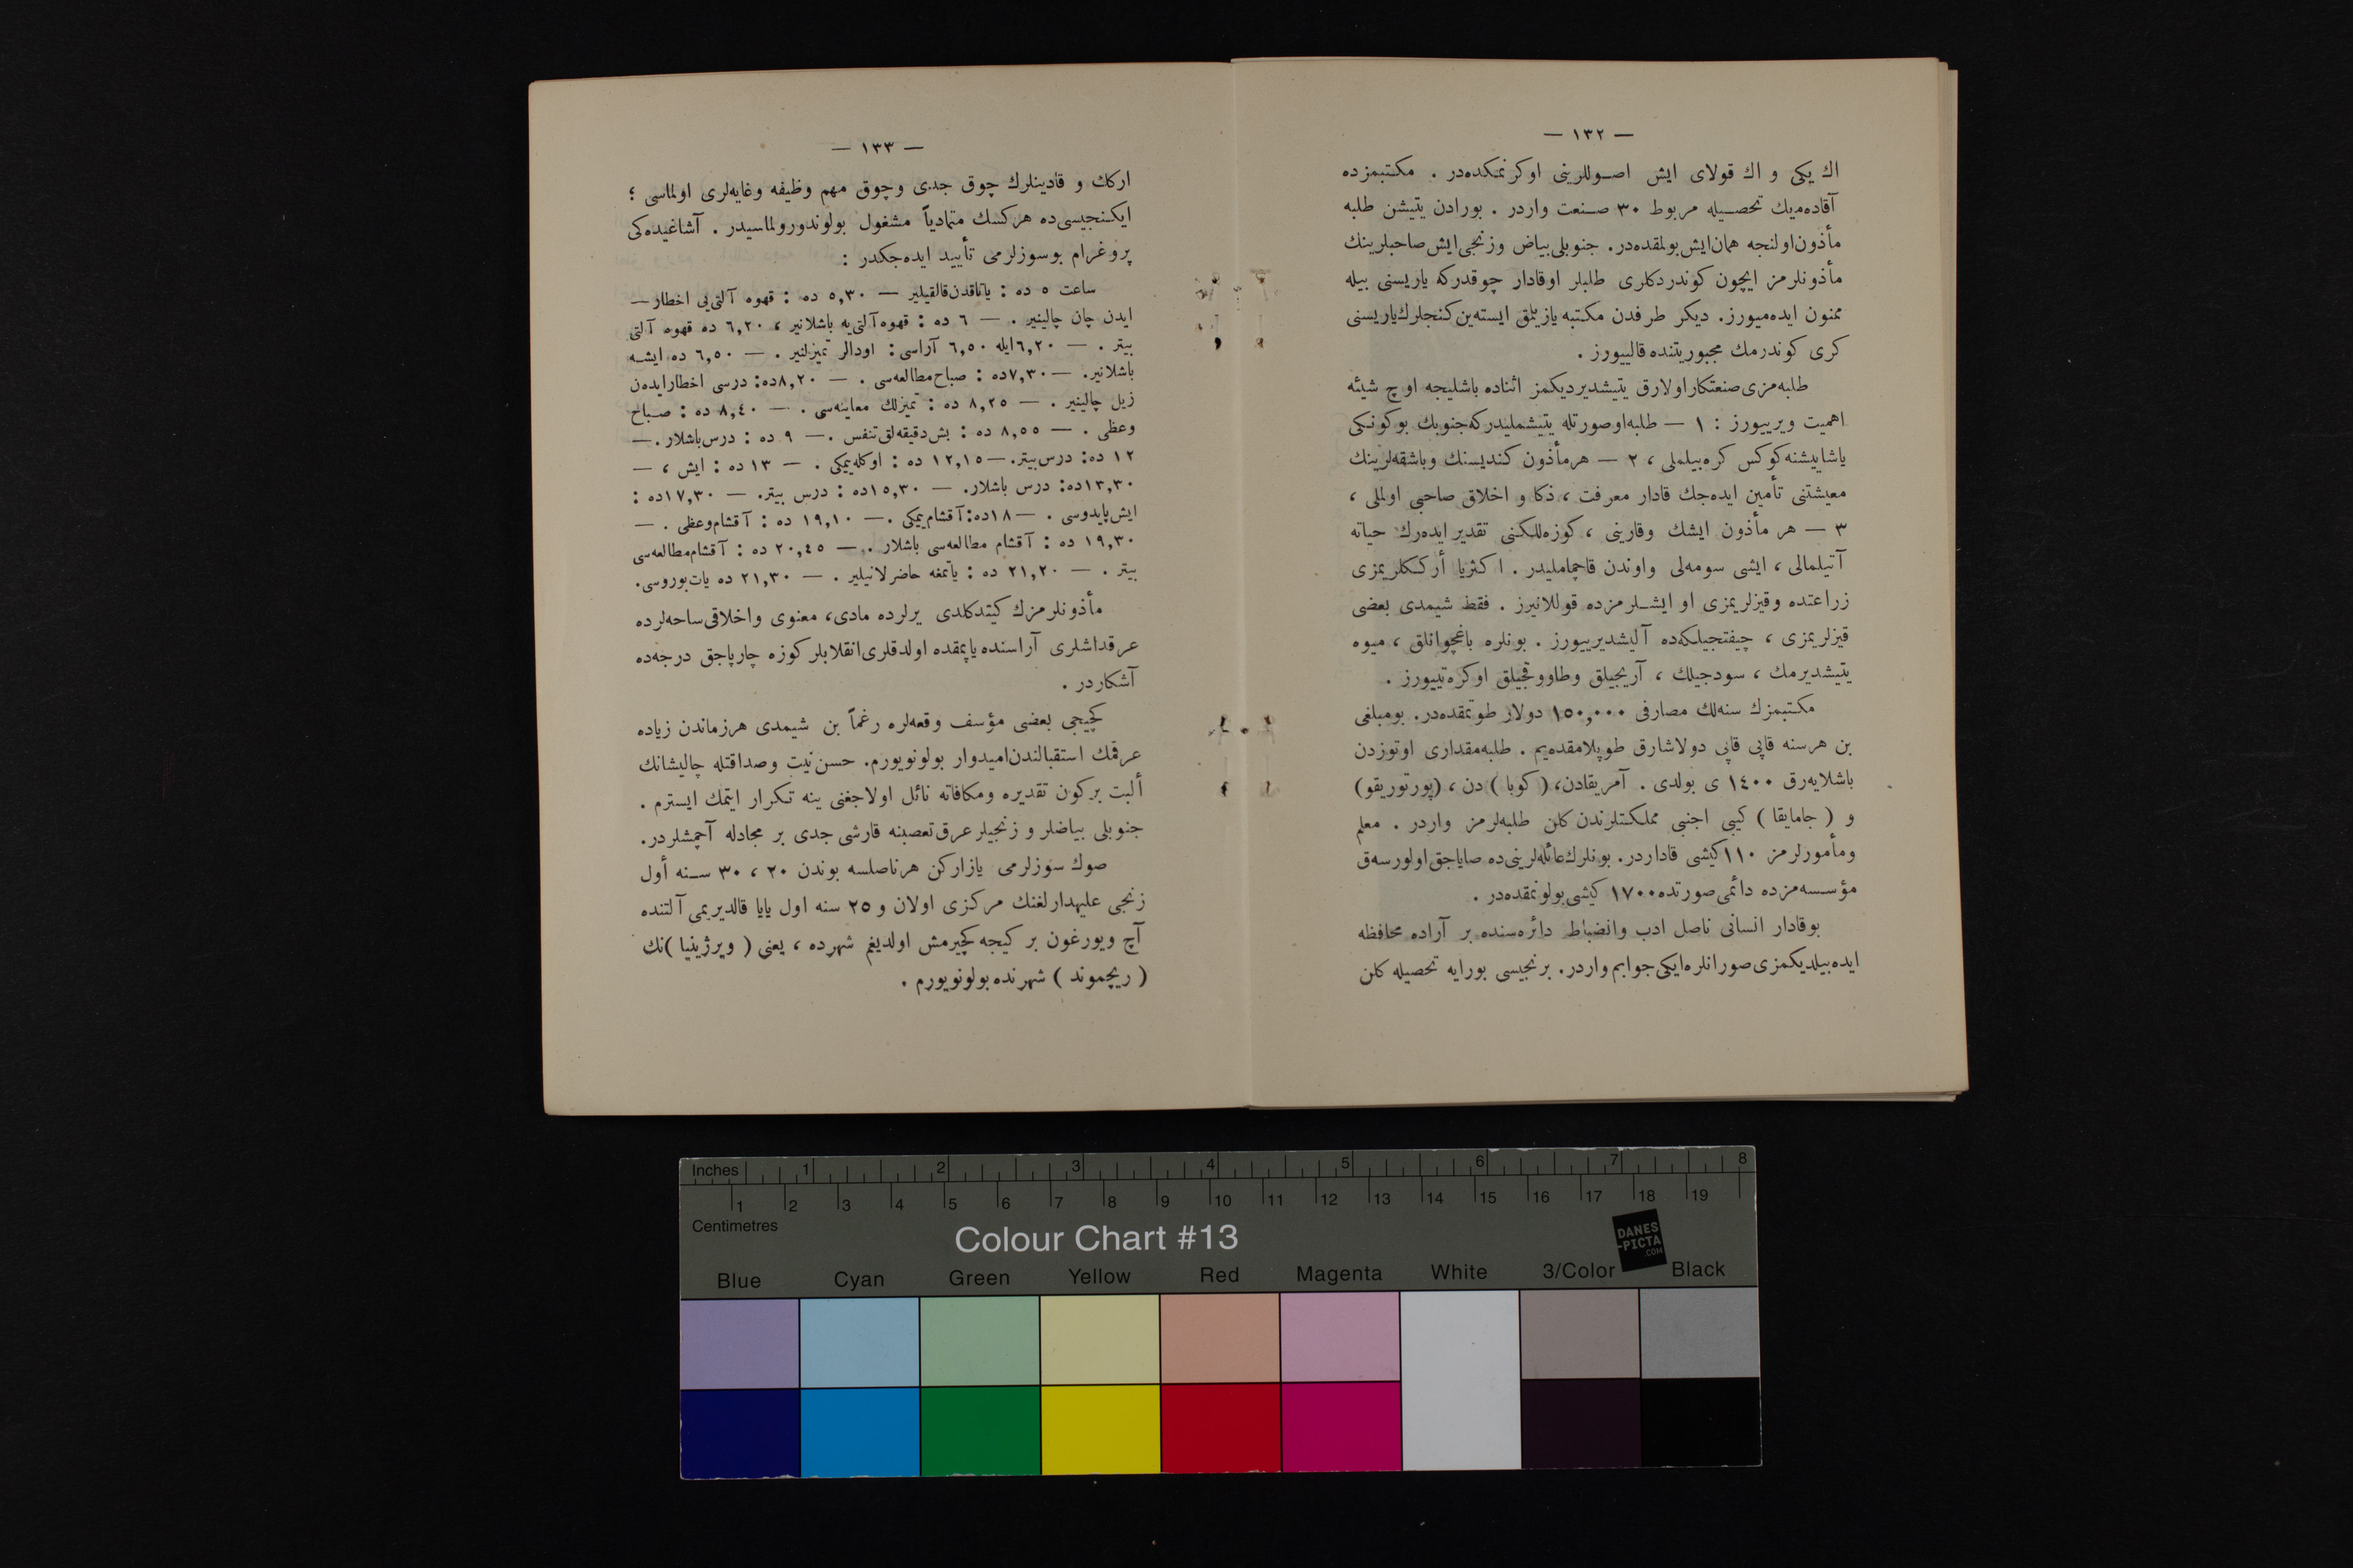 — ١٣٢ —
اك يكی و اك قولای ایش اصوللرینی اوكرنمكده‌در . مكتبمزده
آقاده‌میك تحصیله مربوط ٣٠ صنعت واردر . بورادن یتیشن طلبه
مأذون اولنجه همان ایش بولمقده‌در. جنوبلی بیاض وزنجی ایش صاحبلرینك
مأذونلرمز ایچون كوندردكلری طلبلر اوقادار چوقدركه یاریسنی بیله
ممنون ایده‌میورز. دیكر طرفدن مكتبه یازیلمق ایسته‌ین كنجلرك یاریسنی
كری كوندرمك مجبوریتنده قالییورز .
طلبه‌مزی صنعتكار اولارق یتیشدیردیكمز اثناده باشلیجه اوچ شیئه
اهمیت ویرییورز : ١ — طلبه اوصورتله یتیشملیدركه جنوبك بوكونكی
یاشاییشنه كوكس كره‌بیلملی ، ٢ — هرمأذون كندیسنك وباشقه‌لرینك
معیشتنی تأمین ایده‌جك قادار معرفت ، ذكا و اخلاق صاحبی اولملی ،
٣ — هر مأذون ایشك وقارینی ، كوزه‌للكنی تقدیر ایده‌رك حیاته
آتیلمالی ، ایشی سومه‌لی واوندن قاچمامليدر . اكثریا أرككلریمزی
زراعتده وقیزلریمزی او ایشلرمزده قوللانیرز . فقط شیمدی بعضی
قیزلریمزی ، چیفتجیلكه‌ده آلیشدیرییورز . بونلره باغچوانلق ، میوه
یتیشدیرمك ، سودجیلك ، آریجیلق وطاووقجیلق اوكره‌تییورز .
مكتبمزك سنه‌لك مصارفی ١٥٠,٠٠٠ دولار طوتمقده‌در. بومبلغی
بن هرسنه قاپی قاپی دولاشارق طوپلامقده‌یم . طلبه‌مقداری اوتوزدن
باشلایه‌رق ١٤٠٠ ی بولدی . آمریقادن، ( كوبا ) دن ، (پورتوریقو)
و ( جامایقا ) كیبی اجنبی مملكتلرندن كلن طلبه‌لرمز واردر . معلم
ومأمورلرمز ١١٠ كیشی قاداردر. بونلرك عائله‌لرینی‌ده صایاجق اولورسه‌ق
مؤسسه‌مزده دائمی صورتده ١٧٠٠ كیشی بولونمقده‌در .
بوقادار انسانی ناصل ادب وانضباط دائره‌سنده بر آراده محافظه
ایده‌بیلدیكمزی صورانلره ایكی جوابم واردر. برنجیسی بورایه تحصیله كلن
— ١٣٣ —
اركك و قادینلرك چوق جدی وچوق مهم وظیفه وغایه‌لری اولماسی ؛
ایكنجیسی‌ده هركسك متمادیاً مشغول بولوندورولماسیدر . آشاغیده‌كی
پروغرام بوسوزلرمی تأیید ایده‌جكدر :
ساعت ٥ ده : یاتاقدن قالقیلیر — ٥,٣٠ ده : قهوه آلتی‌یی اخطار —
ایدن چان چالینیر . — ٦ ده : قهوه‌آلتی‌یه باشلانیر ، ٦,٢٠ ده قهوه آلتی
بیتر . — ٦,٢٠ ایله ٦,٥٠ آراسی : اودالر تمیزلنیر . — ٦,٥٠ ده ایشه
باشلانیر. — ٧,٣٠ ده : صباح مطالعه‌سی . — ٨,٢٠ ده: درسی اخطار ایدن
زیل چالینیر . — ٨,٢٥ ده : تمیزلك معاینه‌سی . — ٨,٤٠ ده : صباح
وعظی . — ٨,٥٥ ده : بش دقیقه‌لق تنفس .— ٩ ده : درس باشلار .—
١٢ ده: درس بیتر.— ١٢,١٥ ده : اوكله یمكی . — ١٣ ده : ایش ، —
١٣,٣٠ده: درس باشلار. — ١٥,٣٠ده : درس بیتر. — ١٧,٣٠ده :
ایش پایدوسی . — ١٨ده: آقشام یمكی .— ١٩,١٠ ده : آقشام وعظی . —
١٩,٣٠ ده : آقشام مطالعه‌سی باشلار .— ٢٠,٤٥ ده : آقشام مطالعه‌سی
بیتر . — ٢١,٢٠ ده : یاتمغه حاضرلانیلیر . — ٢١,٣٠ ده یات بوروسی.
مأذونلرمزك كیتدكلدی یرلرده مادی، معنوی واخلاقی ساحه‌لرده
عرقداشلری آراسنده یاپمقده اولدقلری انقلابلر كوزه چارپاجق درجه‌ده
آشكاردر .
كچیجی بعضی مؤسف وقعه‌لره رغماً بن شیمدی هرزماندن زیاده
عرقمك استقبالندن امیدوار بولونویورم. حسن نیت وصداقتله چالیشانك
ألبت بركون تقدیره ومكافاته نائل اولاجغنی ینه تكرار ایتمك ایسترم .
جنوبلی بیاضلر و زنجیلر عرق تعصبنه قارشی جدی بر مجادله آچمشلردر.
صوك سوزلرمی یازاركن هرناصلسه بوندن ٢٠ ، ٣٠ سنه أول
زنجی علیهدارلغنك مركزی اولان و ٢٥ سنه اول یایا قالدیریمی آلتنده
آچ ویورغون بر كیجه كچیرمش اولدیغم شهرده ، یعنی ( ویرژینیا )نك
( ریچموند ) شهرنده بولونویورم .
Inches 1 2 3 4 5 6 7 8
1 2 3 4 5 6 7 8 9 10 11 12 13 14 15 16 17 18 19
Centimetres
Colour Chart #13
DANES
-PICTA
.COM
Blue Cyan Green Yellow Red Magenta White 3/Color Black